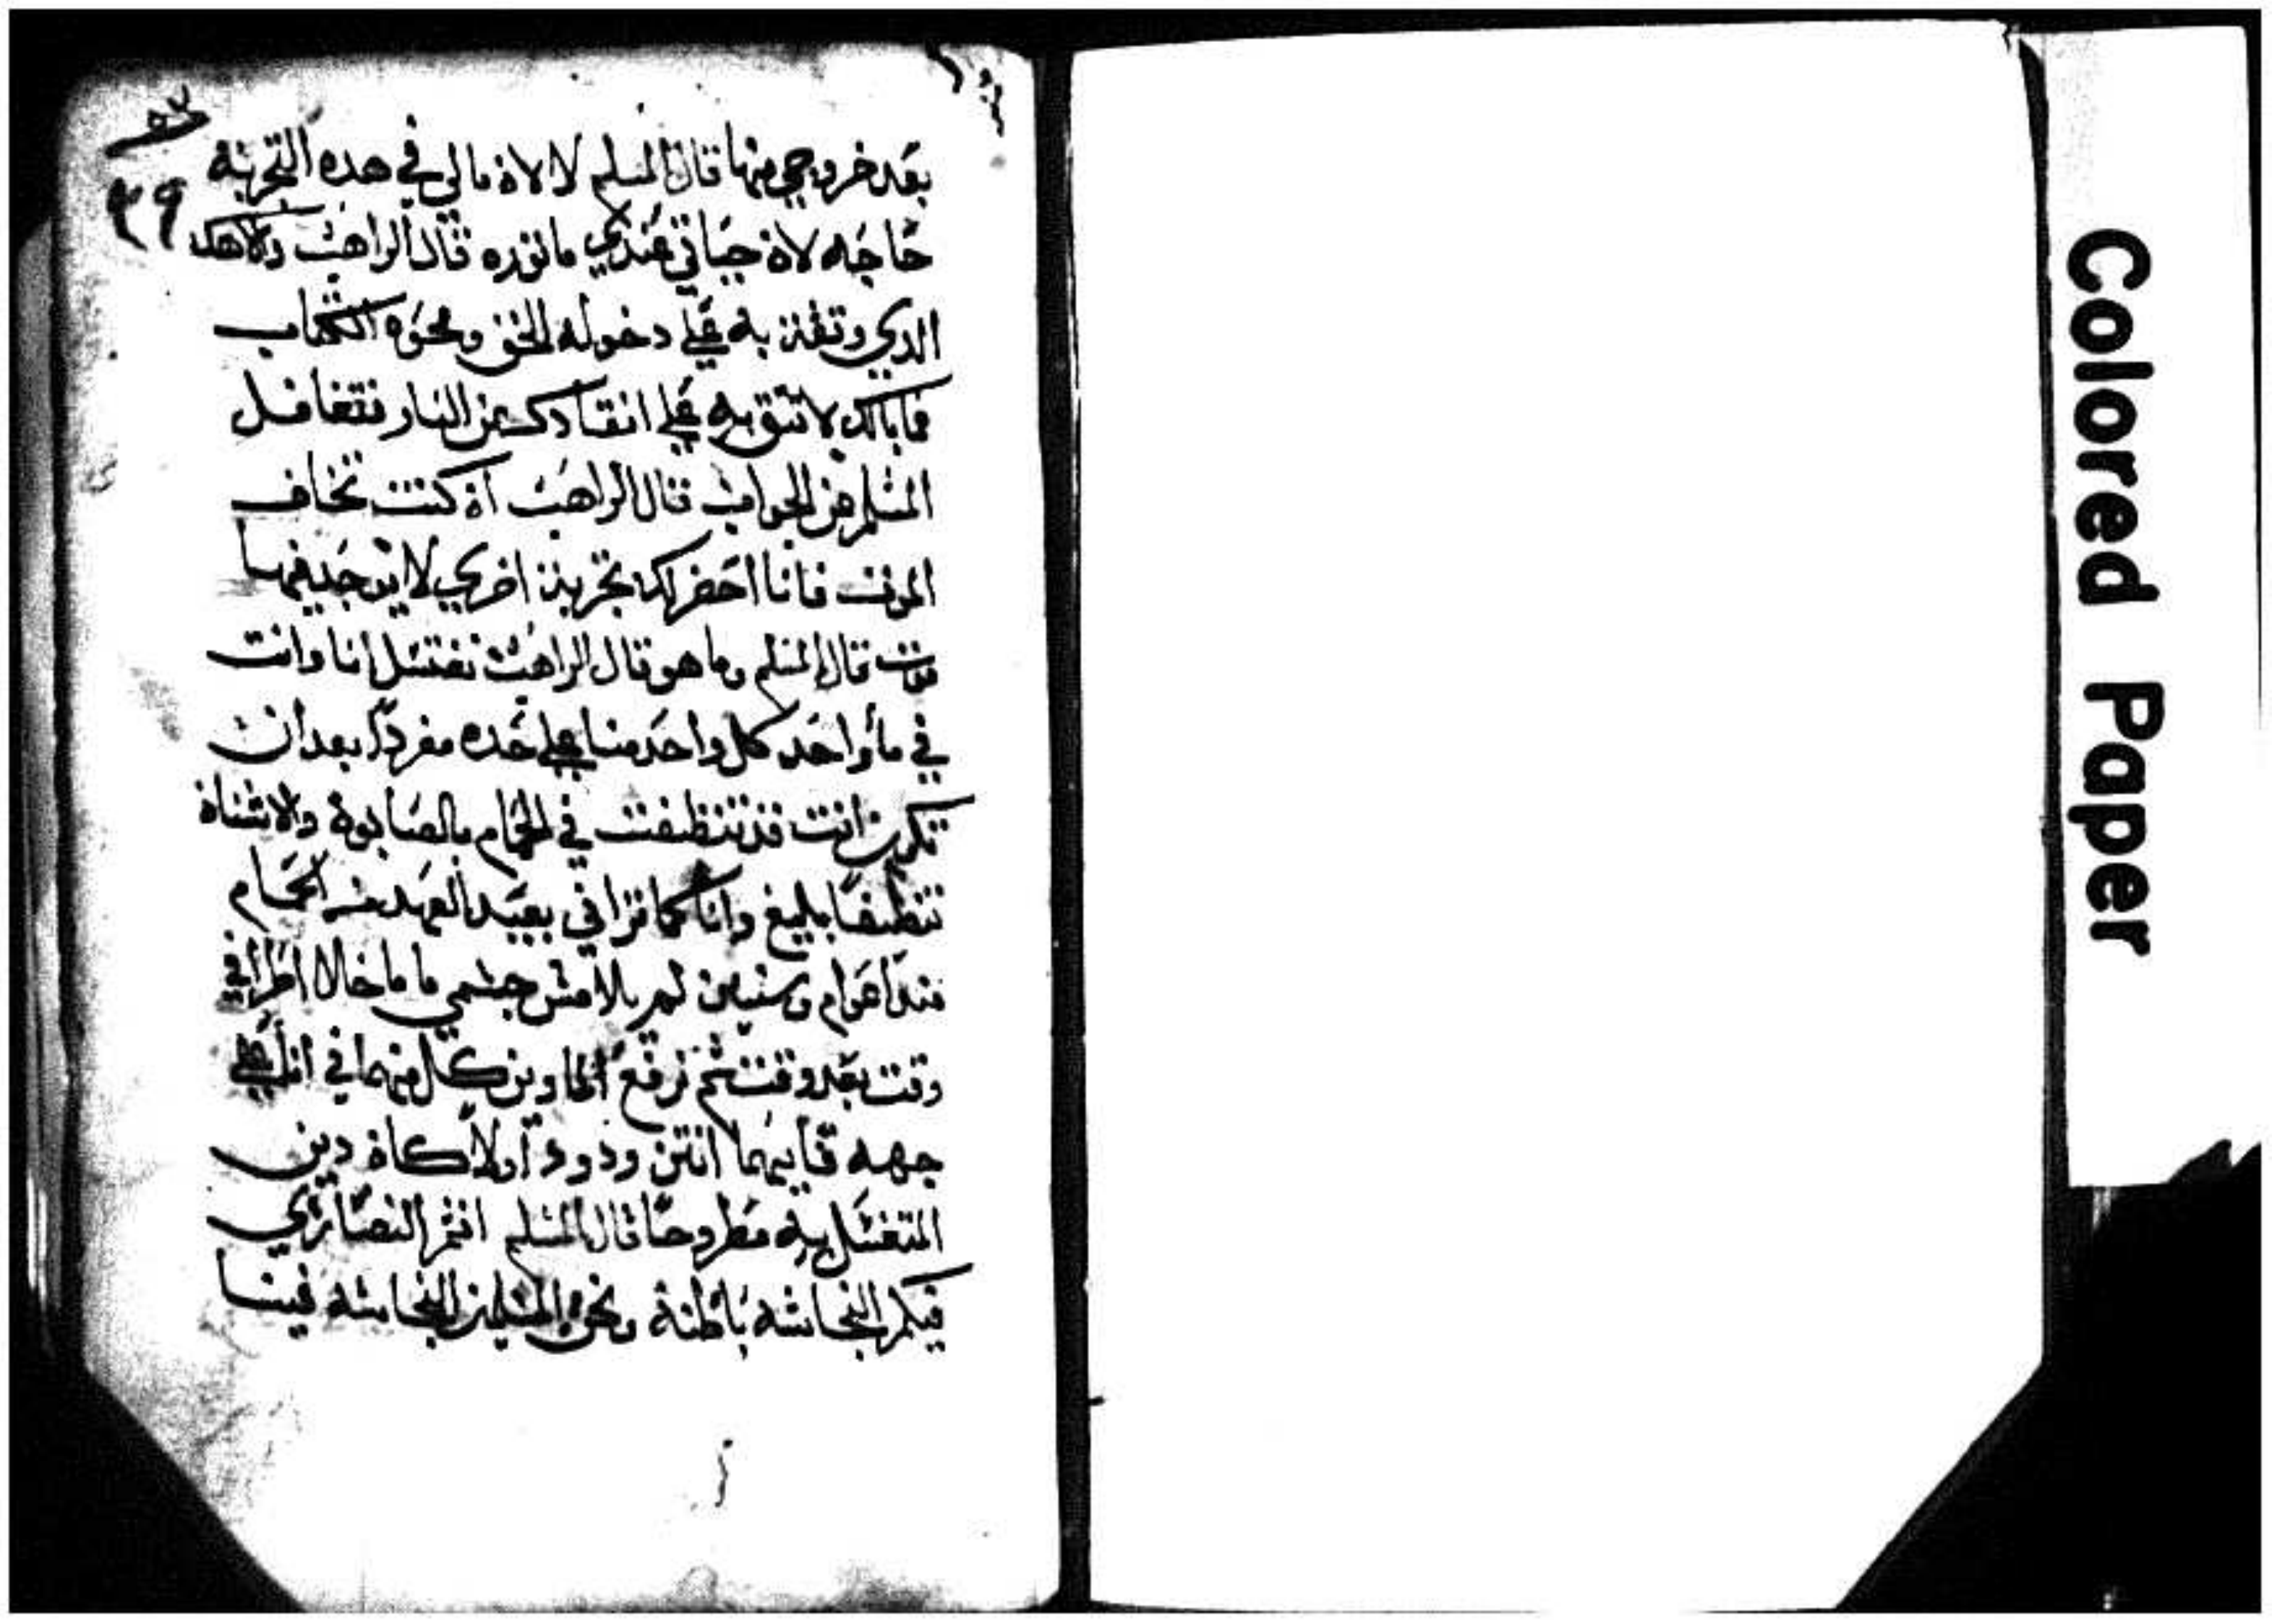 ٣٩
بعد خروجي منها قال المسلم لا لان مالي في هده التجربه
حاجه لان حياتي عندي ما نوره قال الراهب
الدي وتقت به علي دخوله ونحوه الكتاب
فما بالك لا تتق به علي انقادك من النار فتغافل
المسلم عن الجواب قال الراهب ان كنت تخاف
الموت فانا احضر لك تجربة اخري لا يوجد فيها
موت قال المسلم وما هو قال الراهب نغتسل انا وانت
في ماء واحد كل واحد منا علي حده مفردًا بعد ان
تكون انت قد تنظفت في الحمام بالصابون والاشنان
تنظيفًا بليغ وانا كما تراني بعيد العهد من الحمام
مند اعوام وسنين لم يلامس جسمي ما ما خلا اطرافي
وقت بعد وقت تم نرفع الماوين كل منهما في انا علي
جهه فايهما انتن ودود اولا كان دين
المتغسل به مطروحًا قال المسلم انتم النصاري
فيكم النجاسه باطنة ونحن المسلمين النجاسه فينا
Colored Paper